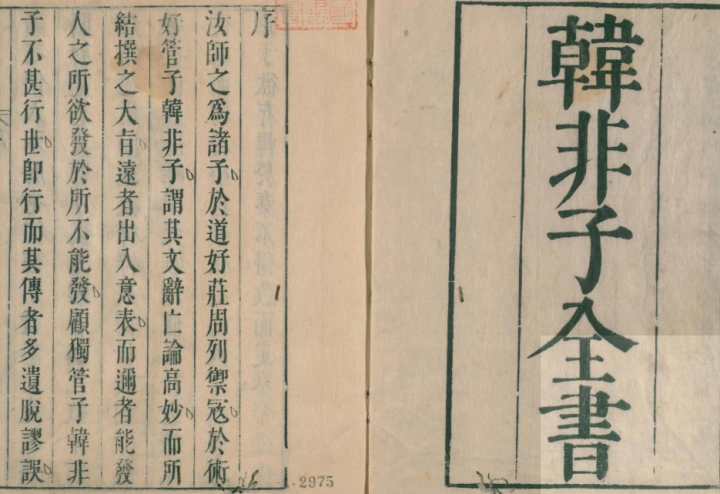 韓非子全書
序
汝師之爲諸子於道好莊周列禦寇於術
好管子韓非子謂其文辭亡論高妙而所
結撰之大㫖遠者出入意表而邇者能發
人之所欲發於所不能發顧獨管子韓非
子不甚行世卽行而其傳者多遺脫謬誤
2975